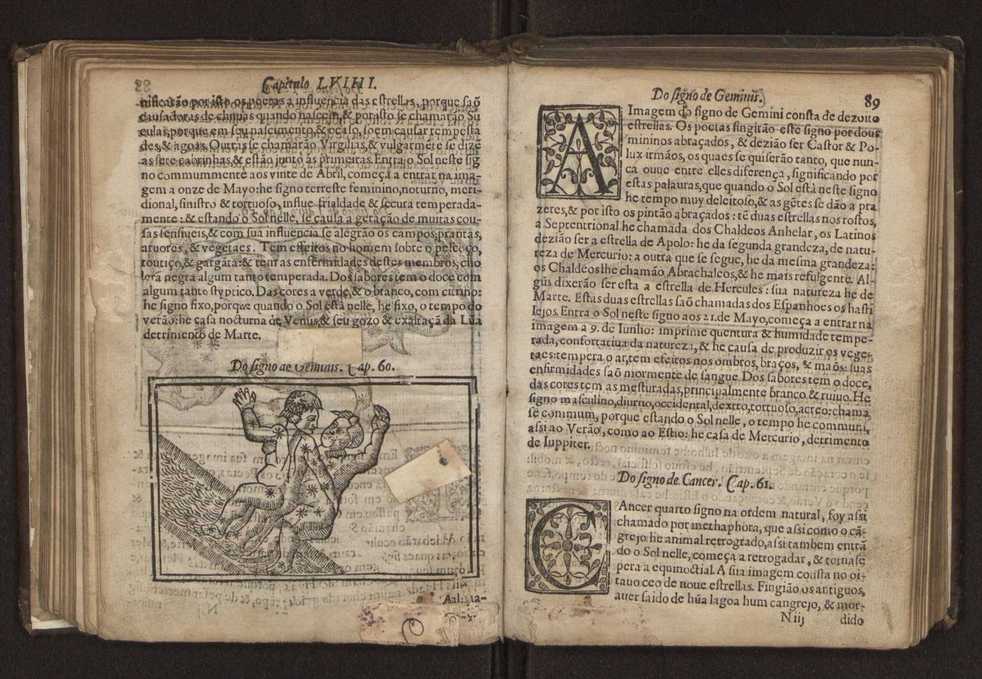 Capitulo LVIIII.
nificação por isto os poetas a influencia das estrellas, porque saõ
causadoras de chuuas quando nascem, & por isto se chamarão Su
culas, porque em seu nascimento, & ocaso, soem causar tempesta
des, & agoas. Outras se chamarão Virgilias, & vulgarmẽte se dizẽ
as sete cabrinhas, & estão junto às primeiras. Entra o Sol neste sig
no commummente aos vinte de Abril, começa a entrar na ima-
gem a onze de Mayo: he signo terrestre feminino, noturno, meri-
dional, sinistro & tortuoso, influe frialdade & secura temperada-
mente: & estando o Sol nelle, se causa a geração de muitas cou-
sas sensiueis, & com sua influencia se alegrão os campos, prantas,
aruores, & vegetaes. Tem effeitos no homem sobre o pescoço,
toutiço, & garganta: & tem as enfermidades destes membros, cho
lera negra algum tanto temperada. Dos sabores tem o doce com
algum tanto styptico. Das cores a verde, & o branco, com citrino:
he signo fixo, porque quando o Sol està nelle, he fixo, o tempo do
verão: he casa nocturna de Venus, & seu gozo & exaltaçã da Lũa
detrimento de Marte.
Do signo de Geminis. Cap. 60.
A Imagem
Do signo de Geminis. 89
A Imagem do signo de Gemini consta de dezoito
estrellas. Os poetas fingirão este signo por dous
mininos abraçados, & dezião ser Castor & Po-
lux irmãos, os quaes se quiserão tanto, que nun-
ca ouue entre elles diferença, significando por
estas palauras, que quando o Sol està neste signo
he tempo muy deleitoso, & as gẽtes se dão a pra
zeres, & por isto os pintão abraçados: tẽ duas estrellas nos rostos,
a Septentrional he chamada dos Chaldeos Anhelar, os Latinos
dezião ser a estrella de Apolo: he da segunda grandeza, de natu-
reza de Mercurio: a outra que se segue, he da mesma grandeza:
os Chaldeos lhe chamão Abrachaleos, & he mais refulgente. Al-
gũs dixerão ser esta a estrella de Hercules: sua natureza he de
Marte. Estas duas estrellas saõ chamadas dos Espanhoes os hasti
lejos. Entra o Sol neste signo aos 21. de Mayo, começa a entrar na
imagem a 9. de Iunho: imprime quentura & humidade tempe-
rada, confortatiua da natureza, & he causa de produzir os vege-
taes: tempera o ar, tem efeitos nos ombros, braços, & mãos: suas
enfirmidades saõ mormente de sangue. Dos sabores tem o doce,
das cores tem as mesturadas, principalmente branco & ruiuo. He
signo masculino, diurno, occidental, dextro, tortuoso, aereo: chama
se commum, porque estando o Sol nelle, o tempo he commum,
assi ao Verão, como ao Estio: he casa de Mercurio, detrimento
de Iuppiter.
Do signo de Cancer. Cap. 61.
CAncer quarto signo na ordem natural, foy assi
chamado por methaphora, que assi como o cã-
grejo he animal retrogado, assi tambem entrã
do o Sol nelle, começa a retrogadar, & torna se
pera a equinoctial. A sua imagem consta no oi-
tauo ceo de noue estrellas. Fingião os antiguos,
auer saido de hũa lagoa hum cangrejo, & mor-
N iij dido